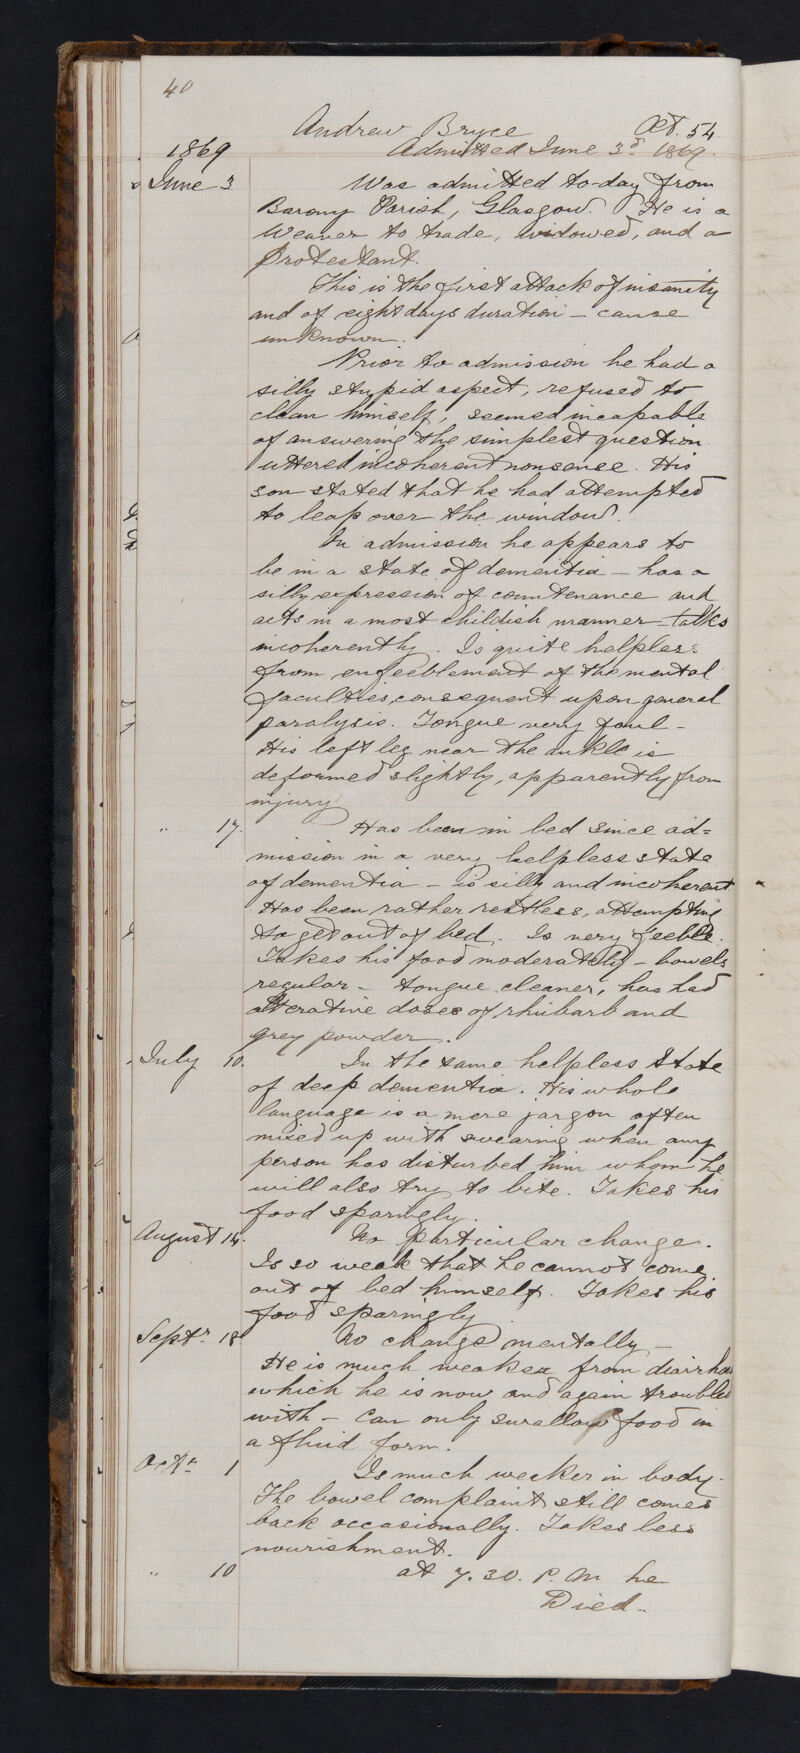 40
Andrew Bryce Aet. 54
1869 Admitted June 3d 1869.
June 3 Was admitted to-day from
Barony Parish, Glasgow. He is a
Weaver to trade, widowed, and a
Protestant.
This is the first attack of insanity
and of eight days duration – cause
unknown.
Prior to admission he had a
silly stupid aspect, refused to
clean himself, seemed incapable
of answering the simplest question
uttered incoherent nonsense. His
son stated that he had attempted
to leap over the window.
On admission he appears to
be in a state of dementia – has a
silly expression of countenance and
acts in a most childish manner – talks
incoherently. Is quite helpless
from enfeeblement of the mental
faculties, consequent upon general
paralysis. Tongue very foul –
His left leg near the ankle is
deformed slightly, apparently from
injury
" 17. Has been in bed since ad=
mission in a very helpless state
of dementia – is silly and incoherent
Has been rather restless, attempting
to get out of bed. Is very feeble.
Takes his food moderately – bowels
regular – tongue cleaner, has had
alterative doses of rhubarb and
grey powder.
July 10. In the same helpless state
of deep dementia. His whole
language is a mere jargon often
mixed up with swearing when any
person has disturbed him whom he
will also try to bite. Takes his
food sparingly.
August 14. No particular change.
Is so weak that he cannot come
out of bed himself. Takes his
food sparingly
Septr 18 No change mentally –
He is much weaker from diarrhoea
which he is now and again troubled
with – Can only swallow food in
a fluid form.
Octr 1 Is much weaker in body.
The bowel complaint still comes
back occasionally. Takes less
nourishment.
" 10 at 7.30. P.M he
Died –